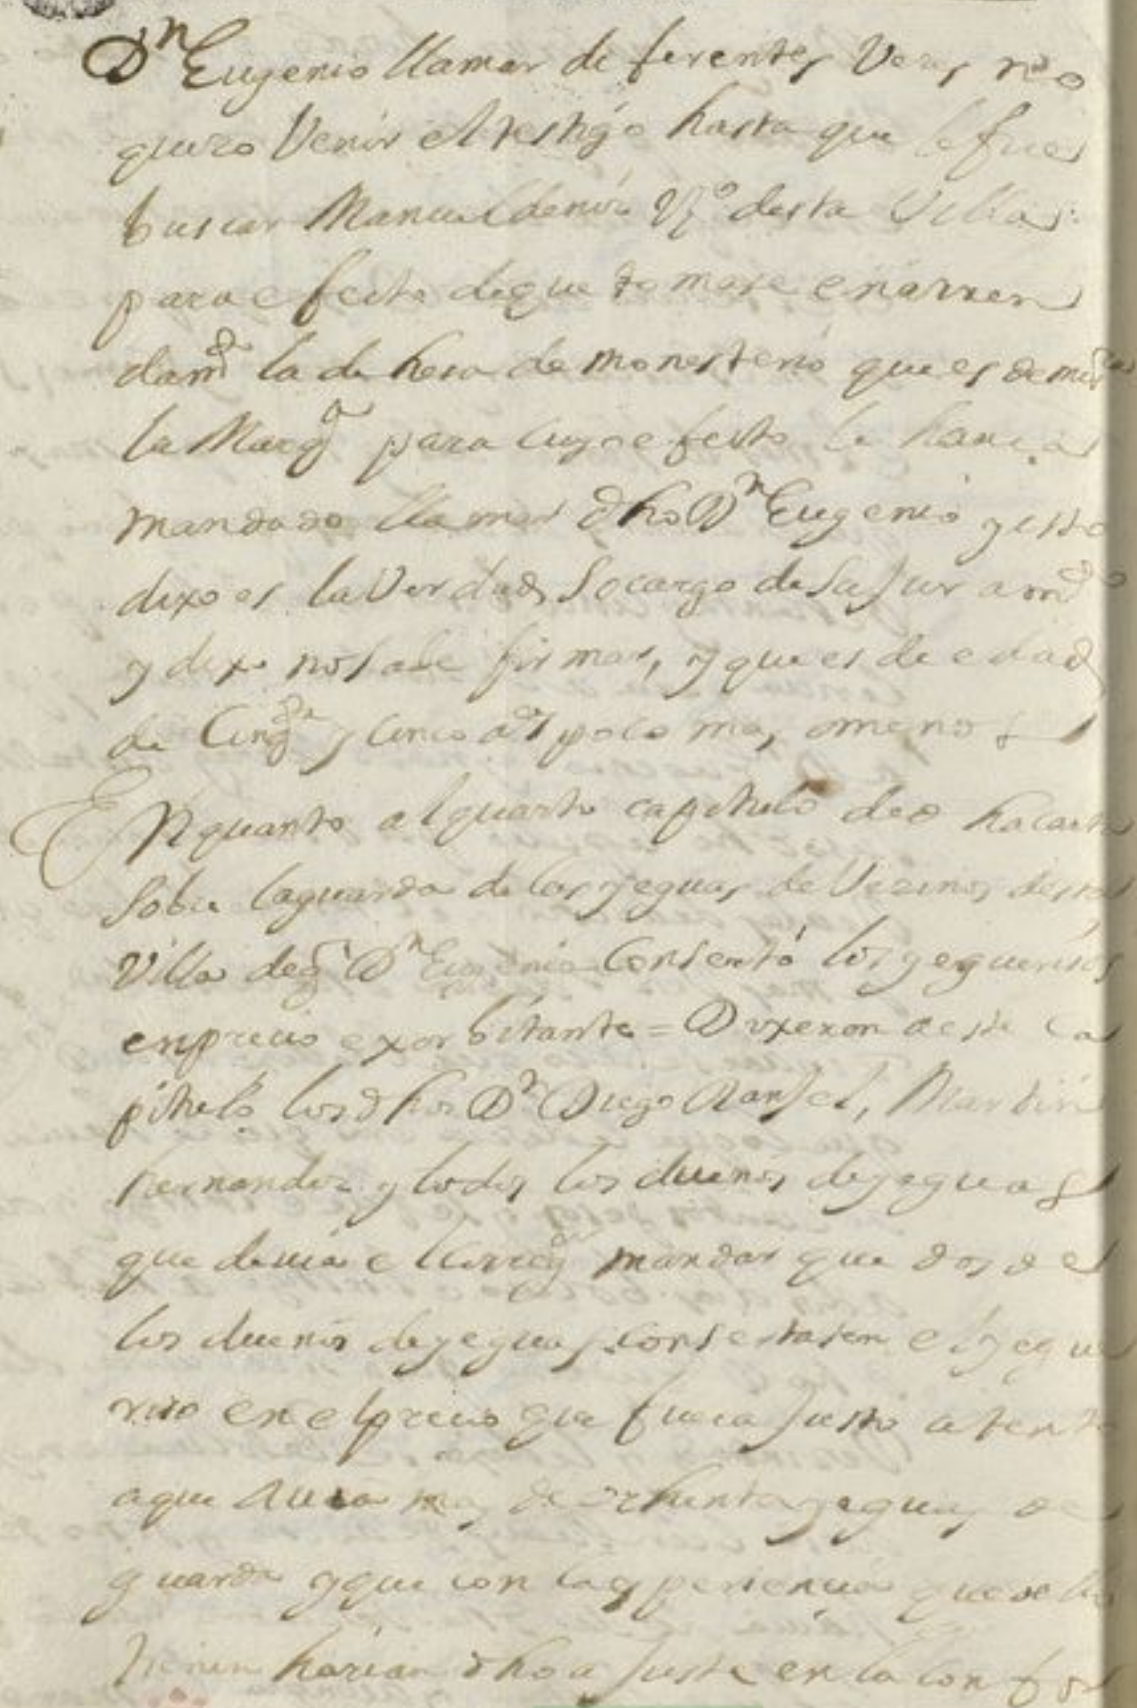 Dn Eugenio llamar diferentes Vezes no
quizo Venir el testigo hasta que le fue a
buscar Manuel Vo desta Villa
para efecto de que tomase en arren
damto la dehesa de monesterio que es de mi sa
la Marqa para cuyo efecto le havia
mandado llamar dho Dn Eugenio y esto
dixo es la Verdad Socargo de Su Juramto
y dixo no Save firmar, y que es de edad
de Cinqta y Cinco as poco mas, o menos
En quanto al quarto capitulo de dha carta
Sobre la guarda de las yeguas de Vezinos desta
Villa de q Dn Eugenio Consertó los yeguerisos
en precio exorbitante = Dixeron a este Ca
pitulo los dhos Dn Diego Ransel, Martin
Fernandez y todos los dueños de yeguas
que devia el Corregor mandar que dos de
los dueños de yeguas consertasen el yegue
riso en el precio que fuera Justo atento
a que avia mas de ochenta yeguas de
guarda y que con la esperiencia que de ello
tienen harian dho ajuste en la confor